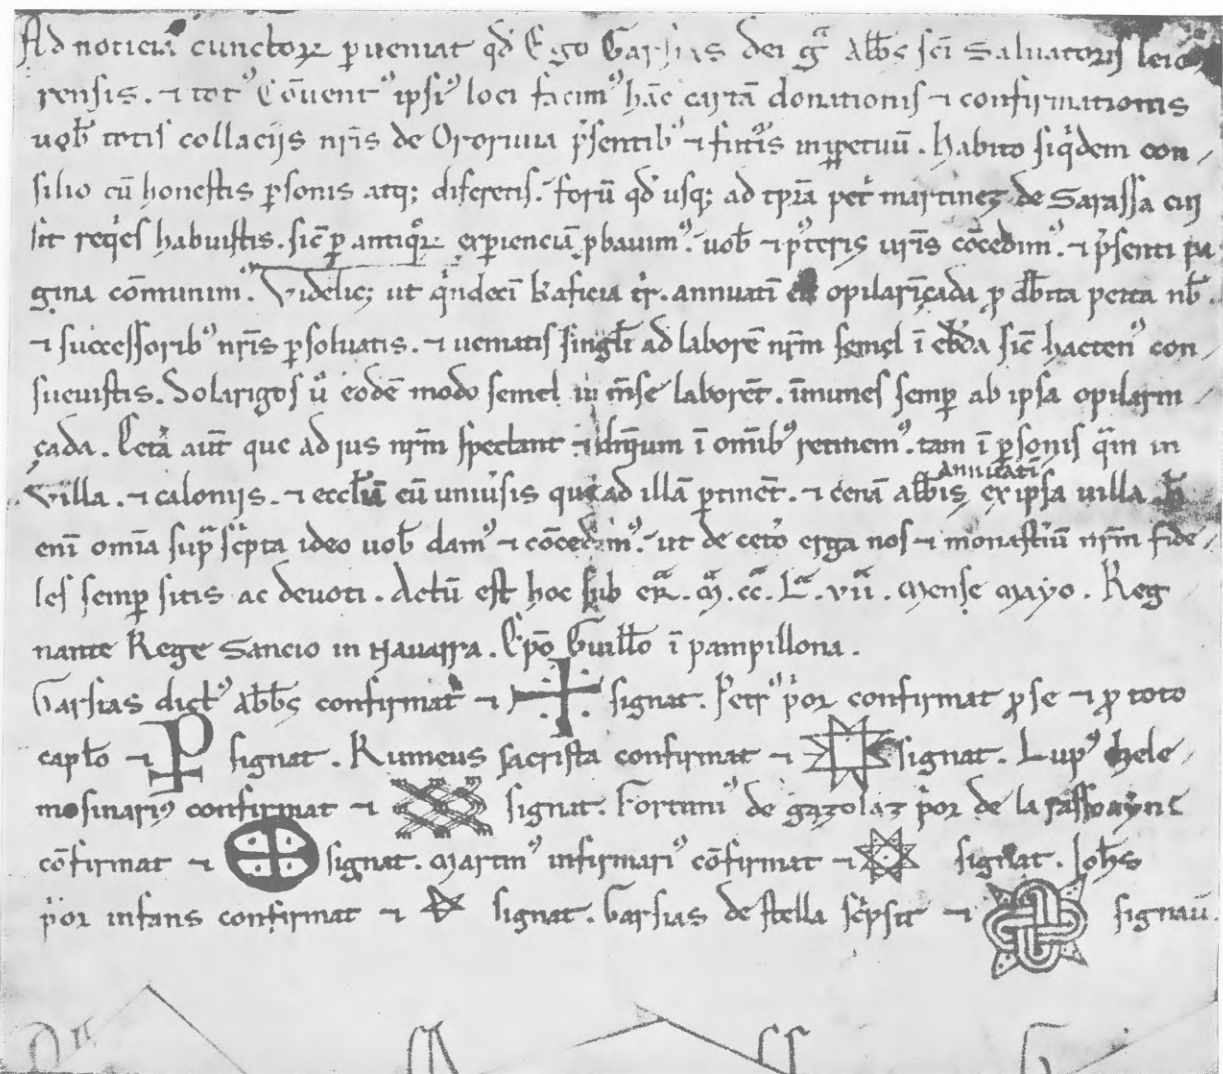 Ad noticiā cunctoꝝ ꝑueniat qď Ego Garsias dei gͣ abb̄s sc̄i Saluatoris leio
rensis . ⁊ totꝰ Cōuentꝰ ipsiꝰ loci facimꝰ hāc cartā donationis ⁊ confirmationis
uob̄ totis collacijs nr̄is de Ororiuia p̄sentibꝰ ⁊ futͥs inꝑpetuū . habito siqͥdem con
silio cū honestis ꝑsonis atq; discretis . forū qď usq; ad tꝑa pet͛ martinez de Sarassa cui
sit reqͥes habuistis . sic̄ ꝑ antiqͦꝝ exꝑienciā ꝓbauimꝰ . uob̄ ⁊ pͦteris ur̄is cōcedimꝰ . ⁊ p̄senti pa
gina cōmunimꝰ . Videlic; ut qͥndeci kaficia tr͛ . annuati opilarinçada ꝓ deb̄ita pecta nb̄ .
⁊ successoribꝰ nr̄is ꝑsoluatis . ⁊ ueniatis singl̄i ad laborē nrm̄ semel ī ebd̄a sic̄ hactenꝰ con
sueuistis . Solarigos u͛o eodē modo semel in m̄se laborēt . īmunes semꝑ ab ipsa opilarin
çada . Cet͛a aut̄ que ad jus nrm̄ spectant ⁊ dn̄ium ī om̄ibꝰ retinemꝰ . tam ī ꝑsonis qͣm in
villa . ⁊ calonijs . ⁊ eccl̄ia cū uniu͛sis que ad illā ꝑtinēt . ⁊ cenā abb̄is annuati ex ipsa uilla . h̄
eni om̄ia supͣ sc͛pta ideo uob̄ damꝰ ⁊ cōcedimꝰ . ut de cet͛o erga nos ⁊ monast͛iū nrm̄ fide
les semꝑ sitis ac deuoti . Actū est hoc sub erͣ . Mͣ . ccͣ . Lͣ . viiͣ . Mense Mayo . Reg
nante Rege Sancio in Nauarra . Ep̄o Guill̄o ī pampillona .
Garsias dictꝰ abb̄s confirmat ⁊ signat . Petrꝰ pͥor confirmat ꝓ se ⁊ ꝓ toto
capl̄o ⁊ signat . Rumeus sacrista confirmat ⁊ signat . Lupꝰ hele
mosinariꝰ confirmat ⁊ signat . Fortuniꝰ de gazolaz pͥor de la
cōfirmat ⁊ signat . Martinꝰ infirmariꝰ cōfirmat ⁊ signat . Joh̄s
pͥor infans confirmat ⁊ signat . Garsias de stella sc͛psit ⁊ signauit .